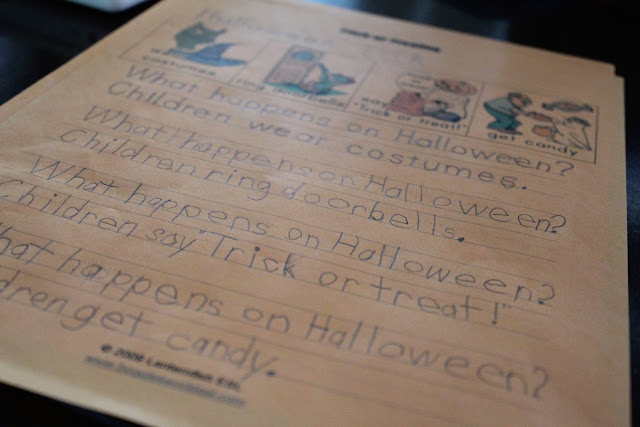 costumes
ring doorbells
say "Trick or treat!"
get candy
What happens on Halloween?
Children wear costumes.
What happens on Halloween?
Children ring doorbells.
What happens on Halloween?
Children say "Trick or treat!"
What happens on Halloween?
get candy.
© 2008 Lanternfish ESL